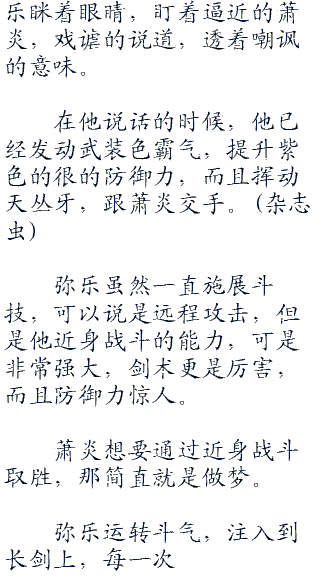 乐眯着眼睛，盯着逼近的萧
炎，戏谑的说道，透着嘲讽
的意味。
在他说话的时候，他已
经发动武装色霸气，提升紫
色的很的防御力，而且挥动
天丛牙，跟萧炎交手。(杂志
虫)
弥乐虽然一直施展斗
技，可以说是远程攻击，但
是他近身战斗的能力，可是
非常强大，剑术更是厉害，
而且防御力惊人。
萧炎想要通过近身战斗
取胜，那简直就是做梦。
弥乐运转斗气，注入到
长剑上，每一次